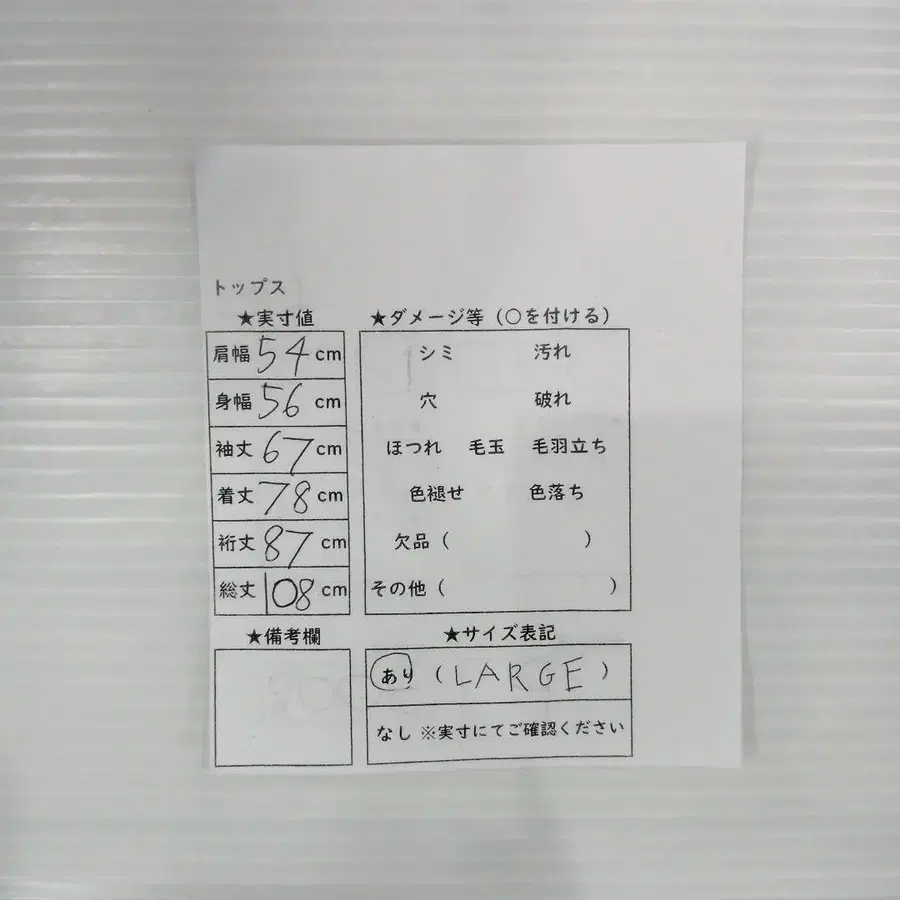 トップス
★実寸値
肩幅 54 cm
身幅 56 cm
袖丈 67 cm
着丈 78 cm
裄丈 87 cm
総丈 108 cm
★ダメージ等（○を付ける）
シミ 汚れ
穴 破れ
ほつれ 毛玉 毛羽立ち
色褪せ 色落ち
欠品（ ）
その他（ ）
★備考欄
★サイズ表記
あり （LARGE）
なし ※実寸にてご確認ください